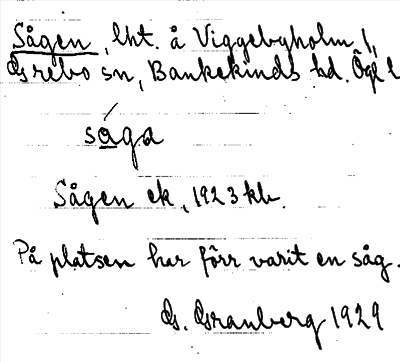 Sågen, lht. å Viggebyholm 1,
Grebo sn, Bankekinds hd. Ögl l
såga
Sågen ek, 1923 kb.
På platsen har förr varit en såg.
G. Granberg 1929